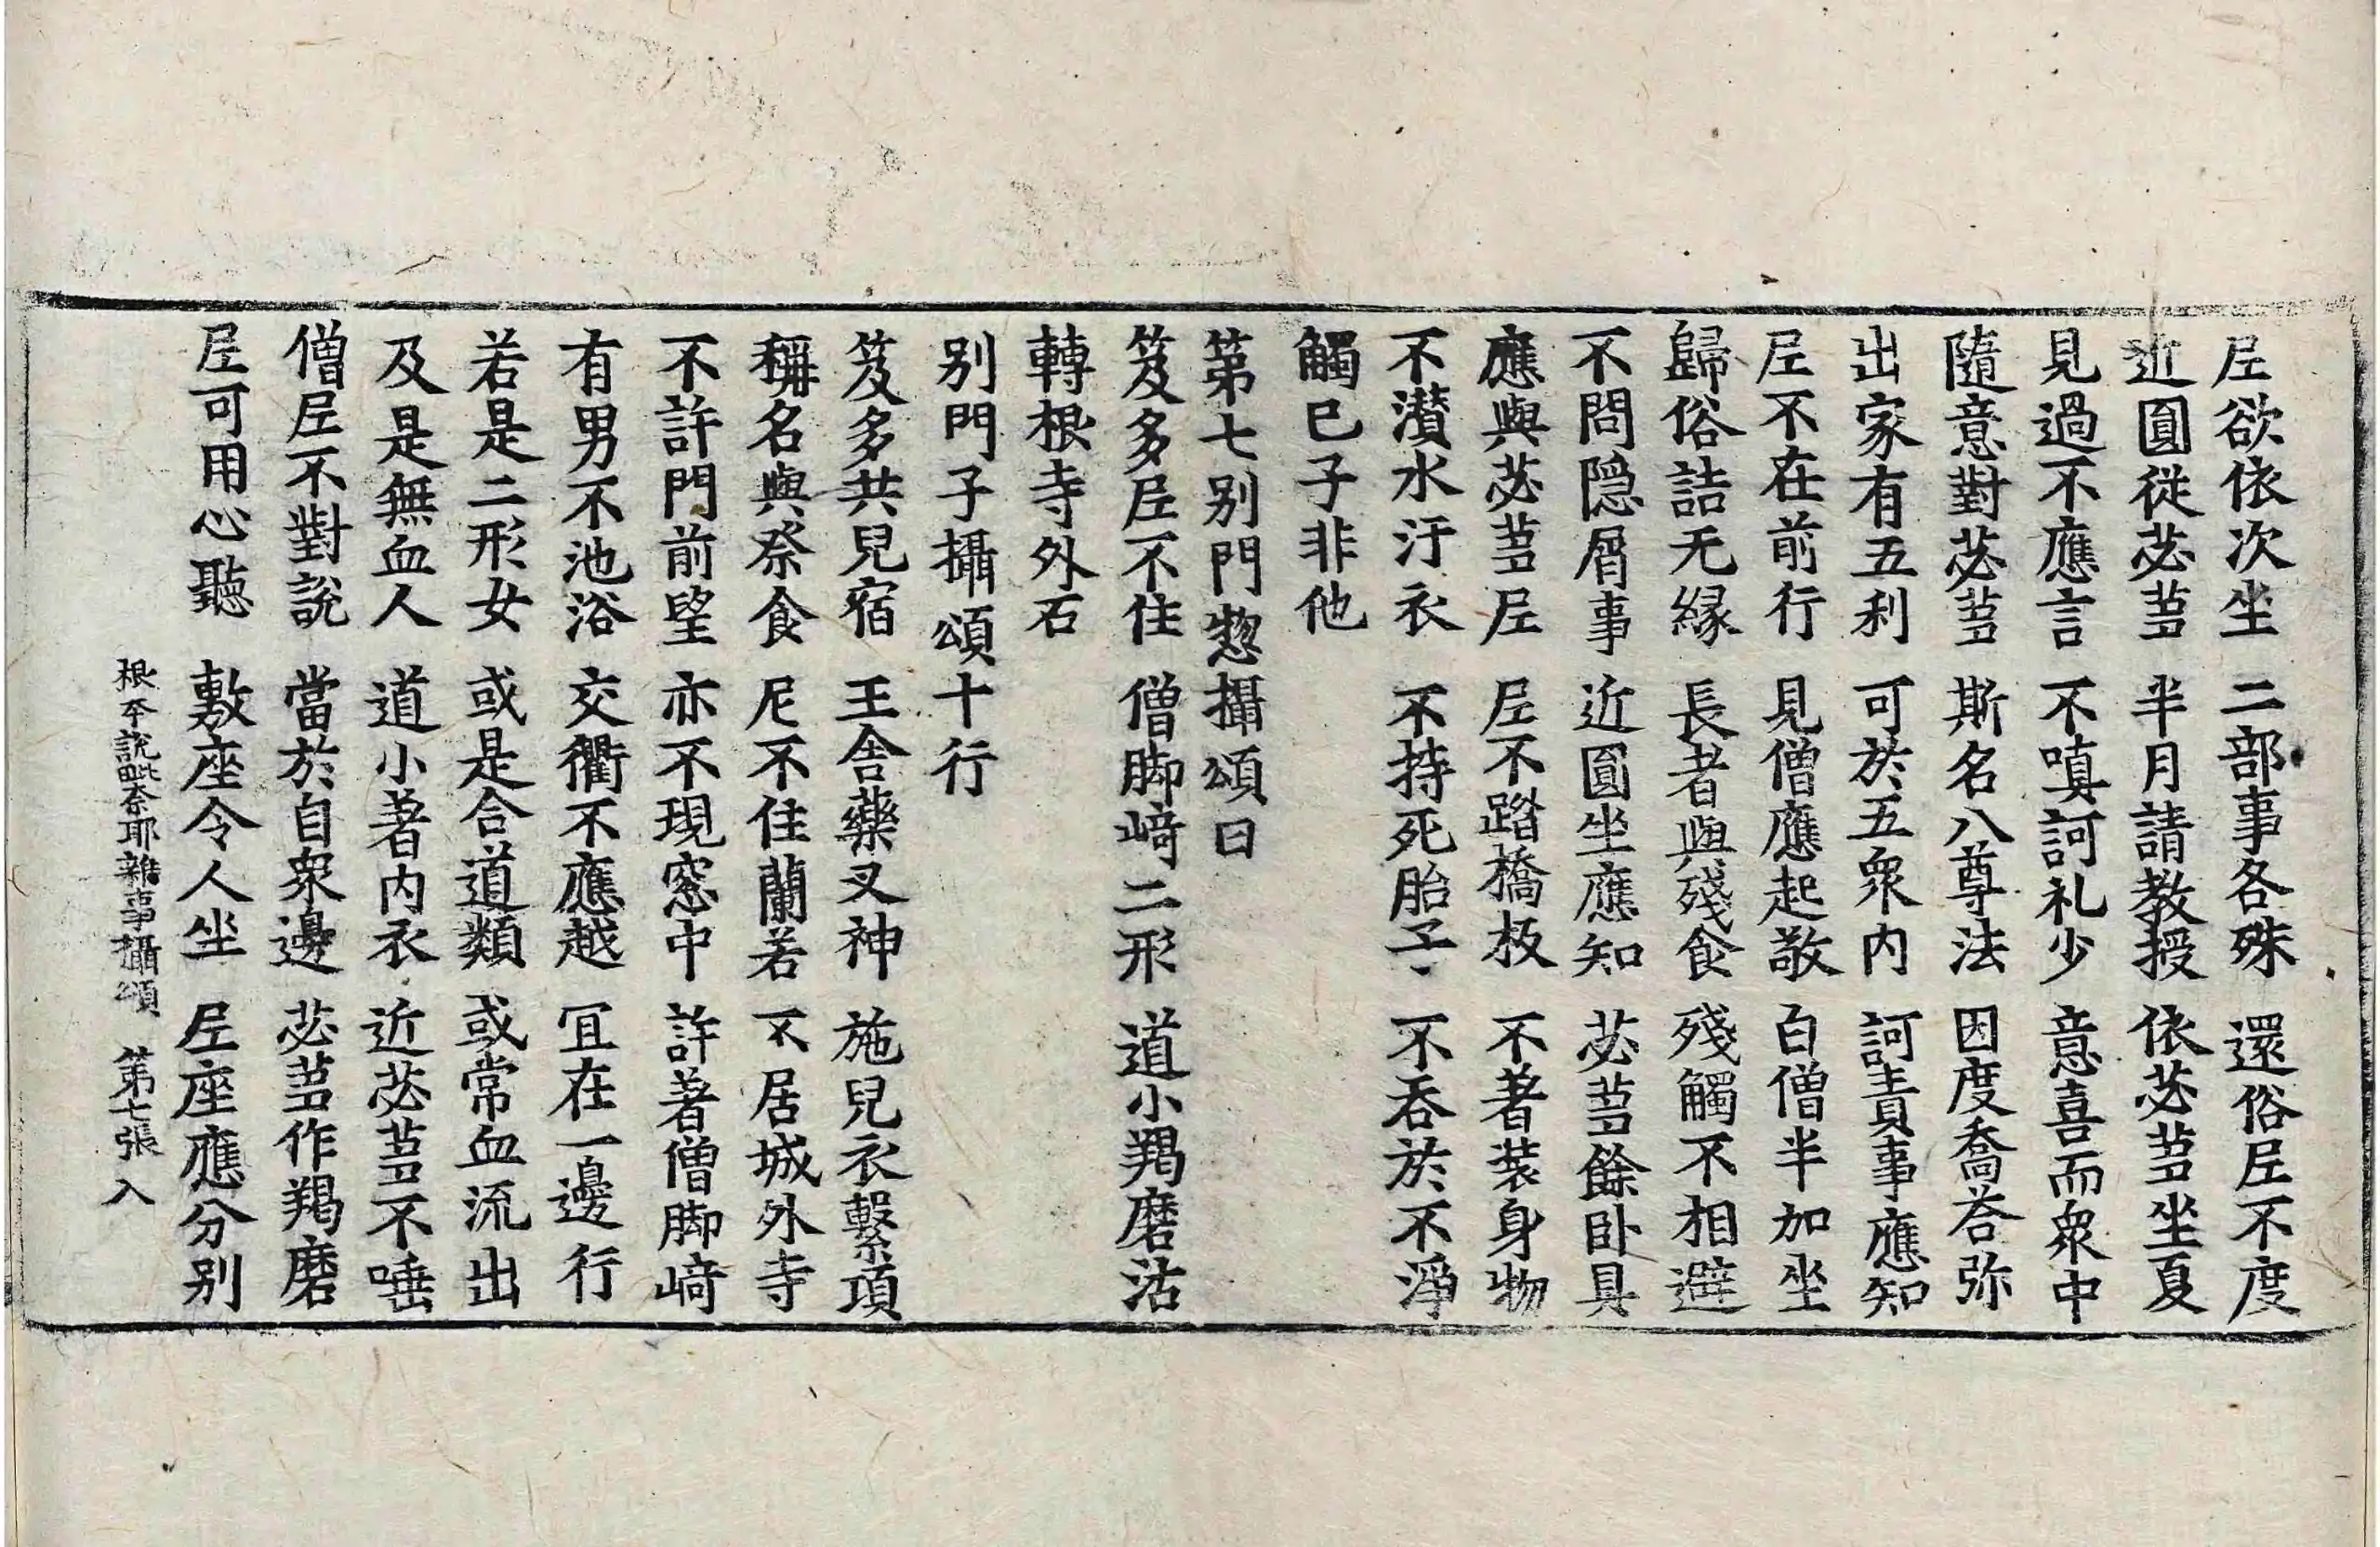 尼欲依次坐 二部事各殊 還俗尼不度
近圓從苾芻 半月請教授 依苾芻坐夏
見過不應言 不嗔訶礼少 意喜而衆中
隨意對苾芻 斯名八尊法 因度喬荅弥
出家有五利 可於五衆内 訶責事應知
尼不在前行 見僧應起敬 白僧半加坐
歸俗詰无緣 長者與殘食 殘觸不相避
不問隠屑事 近圓坐應知 苾芻餘卧具
應與苾芻尼 尼不踏橋板 不著装身物
不灒水汙衣 不持死胎子 不吞於不淨
觸已子非他
第七别門惣攝頌曰
笈多尼不住 僧脚崎二形 道小羯磨沽
轉根寺外石
别門子攝頌十行
笈多共兒宿 王舍藥叉神 施兒衣繫項
稱名與祭食 尼不住蘭若 不居城外寺
不許門前望 亦不現窓中 許著僧脚崎
有男不池浴 交衢不應越 冝在一邊行
若是二形女 或是合道類 或常血流出
及是無血人 道小著内衣 近苾芻不唾
僧尼不對說 當於自衆邊 苾芻作羯磨
尼可用心聽 敷座令人坐 尼座應分别
根本說毗奈耶雜事攝頌 第七張 入